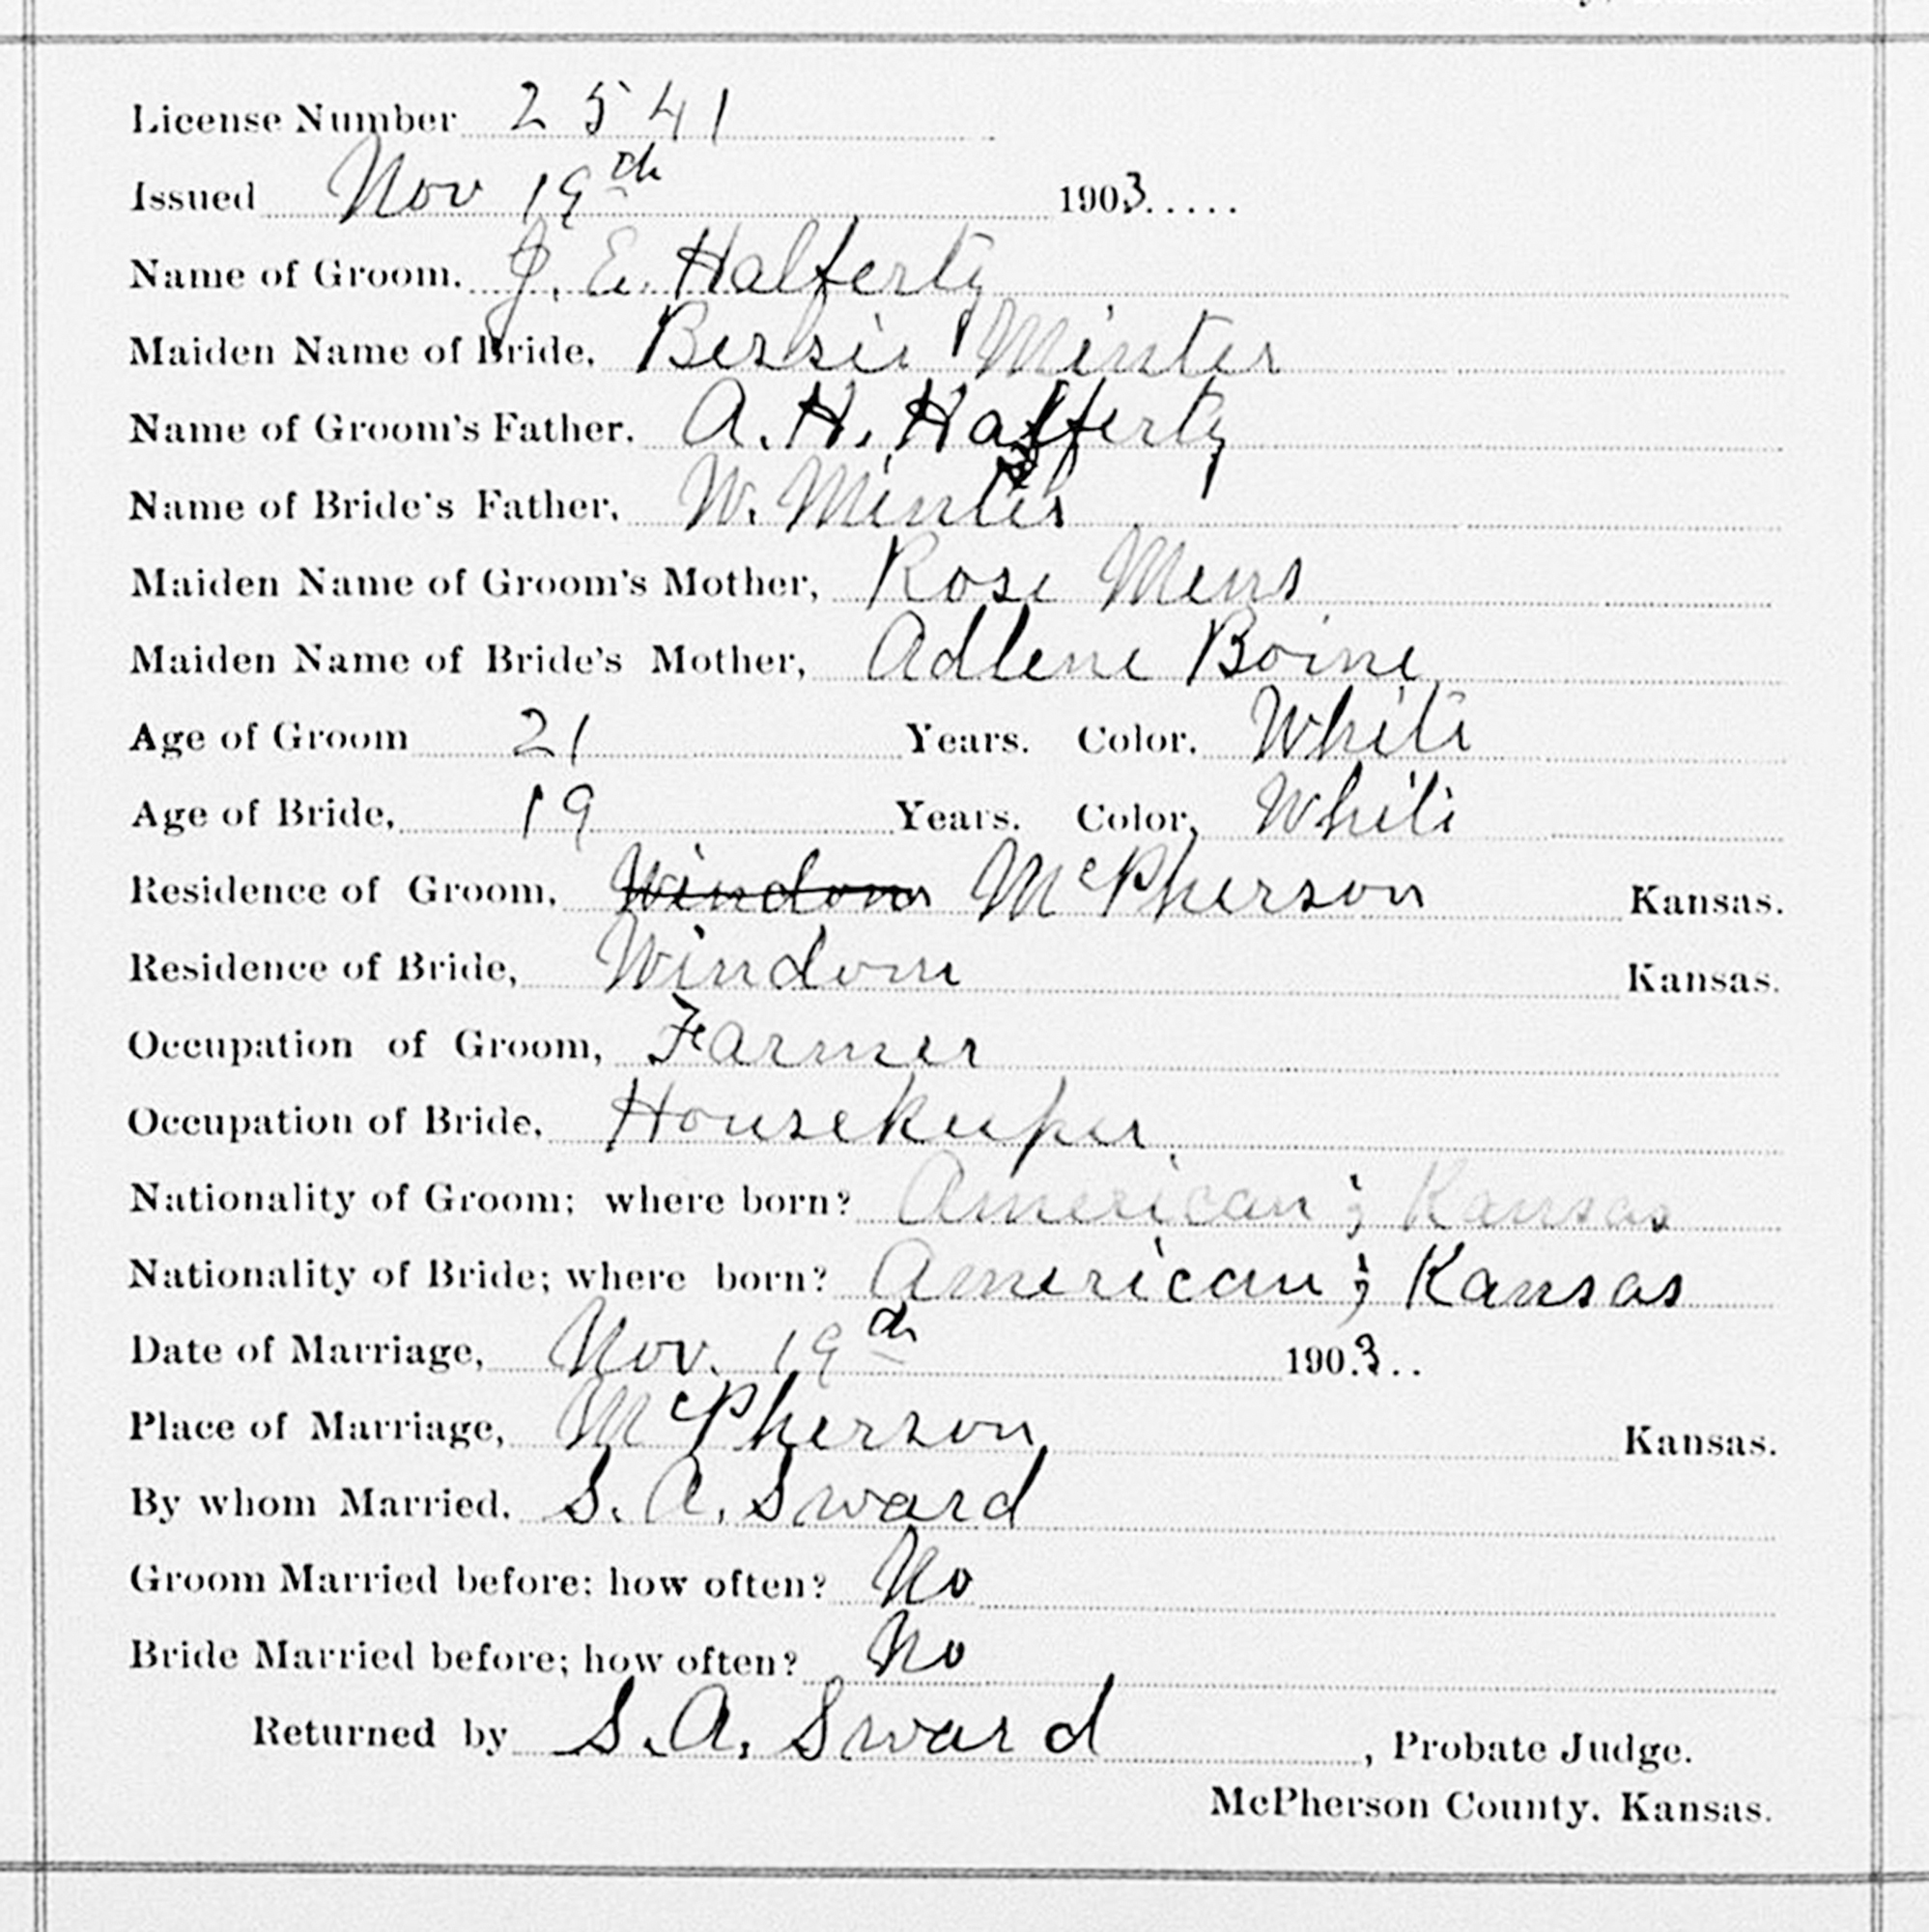 License Number 2541
Issued Nov 19th 1903.....
Name of Groom. J. E. Halferty
Maiden Name of Bride, Bessie Minter
Name of Groom's Father. A. H. Halferty
Name of Bride's Father, W. Minter
Maiden Name of Groom's Mother, Rose
Maiden Name of Bride's Mother, Adlene Boine
Age of Groom 21 Years. Color. White
Age of Bride, 19 Years. Color, White
Residence of Groom, Windom McPherson Kansas.
Residence of Bride, Windom Kansas.
Occupation of Groom, Farmer
Occupation of Bride, Housekeeper
Nationality of Groom; where born? American; Kansas
Nationality of Bride; where born? American; Kansas
Date of Marriage, Nov. 19th 190.3..
Place of Marriage, McPherson, Kansas.
By whom Married, S. A. Sward
Groom Married before; how often? No
Bride Married before; how often? No
Returned by S. A. Sward, Probate Judge.
McPherson County, Kansas.